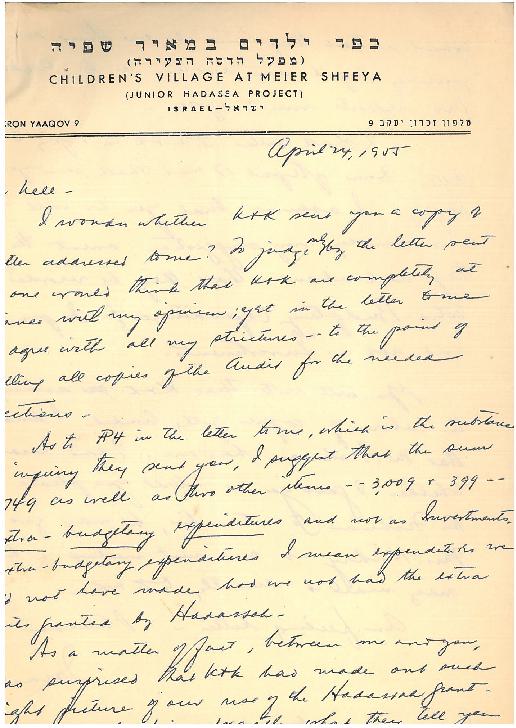 כפר ילדים במאיר שפיה
(מפעל הדסה הצעירה)
CHILDREN'S VILLAGE AT MEIER SHFEYA
(JUNIOR HADASSA PROJECT)
ISRAEL–ישראל
RON YAAQOV 9 טלפון זכרון יעקב 9
April 24, 1955
hele -
I wonder whether K&K sent you a copy of
tter addressed to me? To judge only by the letter sent
one would think that K&K are completely at
ance with my opinion; yet in the letter to me
agree with all my strictures -- to the point of
lling all copies of the Audit for the needed
ctions -
As to ¶4 in the letter to me, which is the substance
inquiry they sent you, I suggest that the sum
749 as well as two other items -- 3,009 & 399 --
xtra-budgetary expenditures and not as Investments.
xtra-budgetary expenditures I mean expenditures we
d not have made had we not had the extra
ts granted by Hadassah -
As a matter of fact, between me and you,
as surprised that K&K had made out such
ight picture of our use of the Hadassah grant -
what they tell you